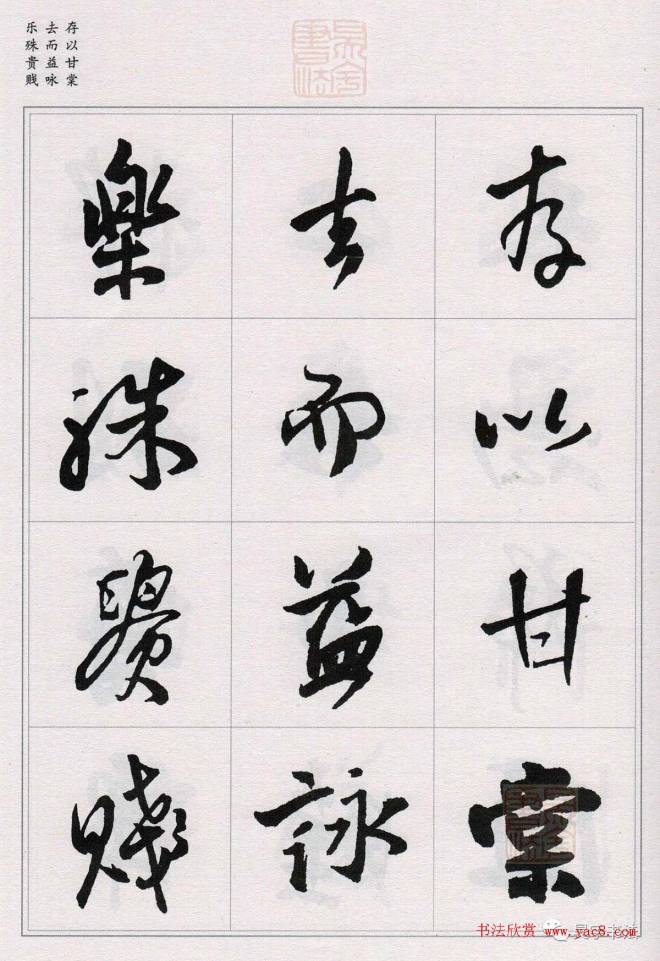 存以甘棠
去而益咏
乐殊贵贱
存以甘棠
去而益詠
樂殊貴賤
书法欣赏 www.yac8.com